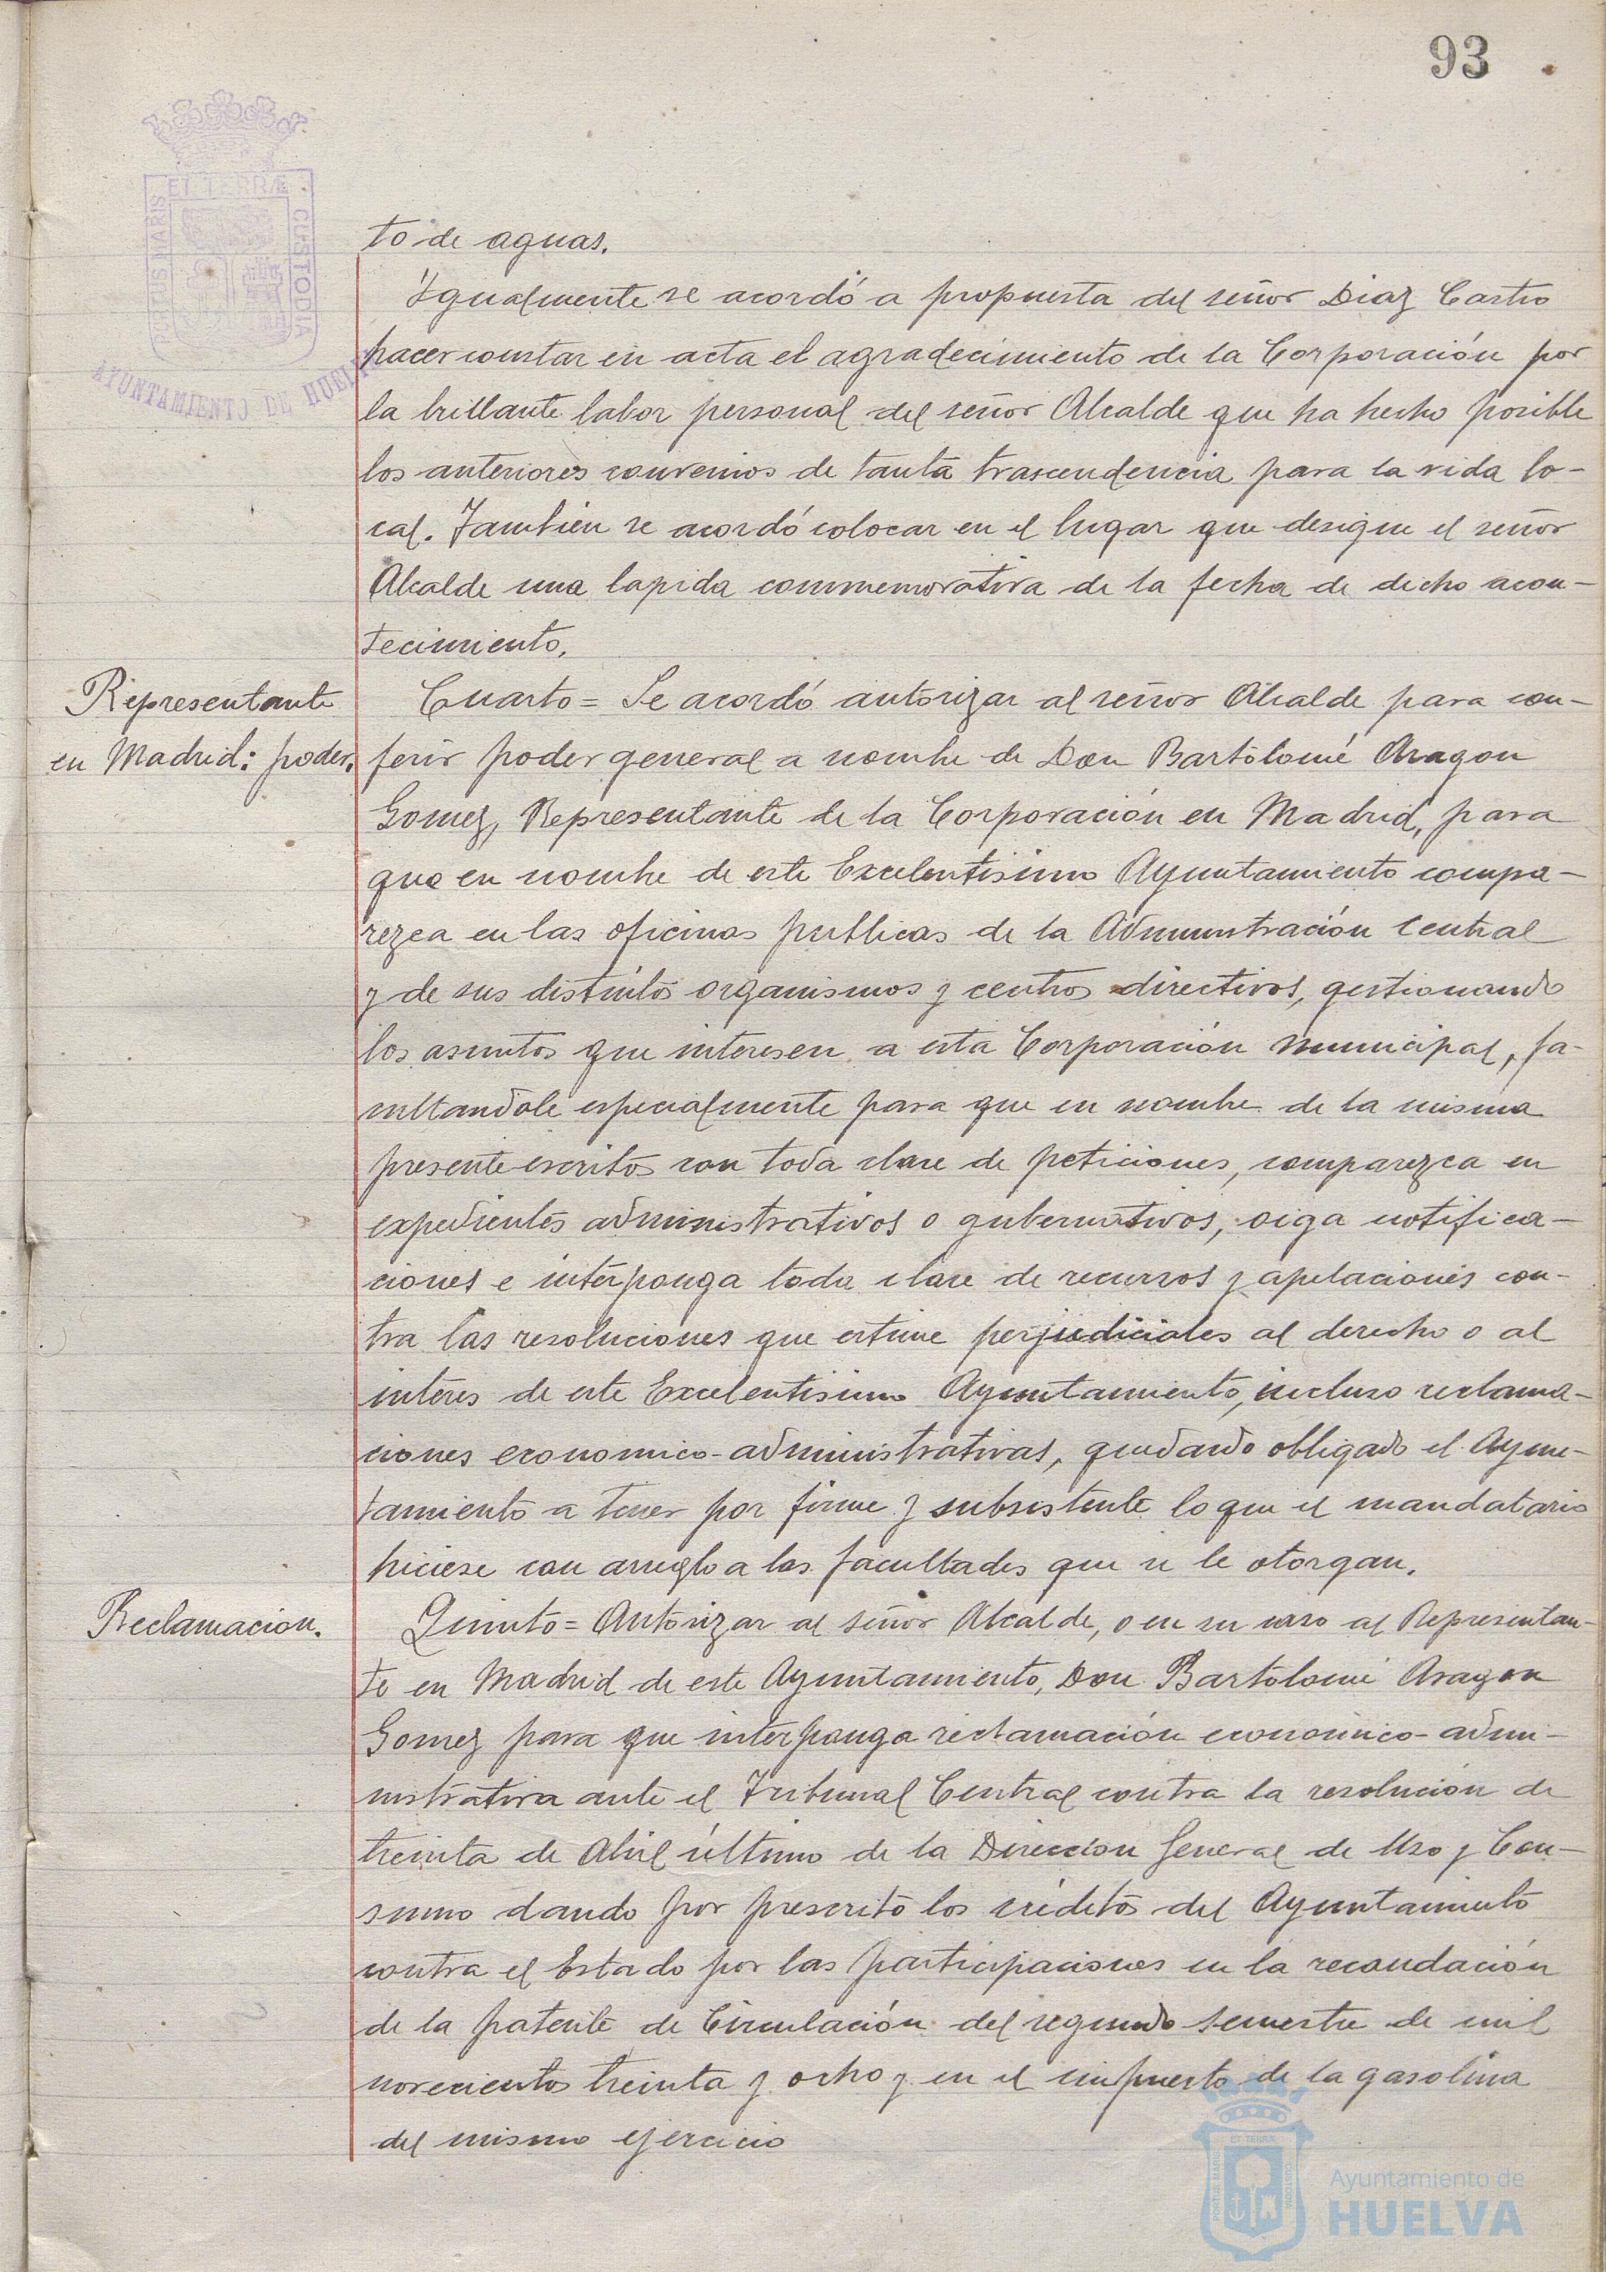 93
ET TERRÆ
PORTUS MARIS
CUSTODIA
AYUNTAMIENTO DE HUELVA
to de aguas.
Igualmente se acordó a propuesta del señor Diaz Castro
hacer constar en acta el agradecimiento de la Corporación por
la brillante labor personal del señor Alcalde que ha hecho posible
los anteriores convenios de tanta trascendencia para la vida lo-
cal. Tambien se acordó colocar en el lugar que designe el señor
Alcalde una lapida commemorativa de la fecha de dicho acon-
tecimiento.
Representante
en Madrid: poder.
Cuarto = Se acordó autorizar al señor Alcalde para con-
ferir poder general a nombre de Don Bartolomé Aragon
Gomez, Representante de la Corporación en Madrid, para
que en nombre de este Excelentisimo Ayuntamiento compa-
rezca en las oficinas publicas de la Administración Central
y de sus distintos organismos y centros directivos, gestionando
los asuntos que interesen a esta Corporación municipal, fa-
cultandole especialmente para que en nombre de la misma
presente escritos con toda clase de peticiones, comparezca en
expedientes administrativos o gubernativos, oiga notifica-
ciones e interponga toda clase de recursos y apelaciones con-
tra las resoluciones que estime perjudiciales al derecho o al
interes de este Excelentisimo Ayuntamiento, incluso reclama-
ciones economico-administrativas, quedando obligado el Ayun-
tamiento a tener por firme y subsistente lo que el mandatario
hiciese con arreglo a las facultades que se le otorgan.
Reclamacion.
Quinto = Autorizar al señor Alcalde, o en su caso al Representan-
te en Madrid de este Ayuntamiento, Don Bartolomé Aragon
Gomez para que interponga reclamación economico-admi-
nistrativa ante el Tribunal Central contra la resolución de
treinta de Abril último de la Direccion General de Uso y Con-
sumo dando por prescrito los créditos del Ayuntamiento
contra el Estado por las participaciones en la recaudación
de la patente de Circulación del segundo semestre de mil
novecientos treinta y ocho y en el impuesto de la gasolina
del mismo ejercicio
ET TERRÆ
PORTUS MARIS
CUSTODIA
Ayuntamiento de
HUELVA